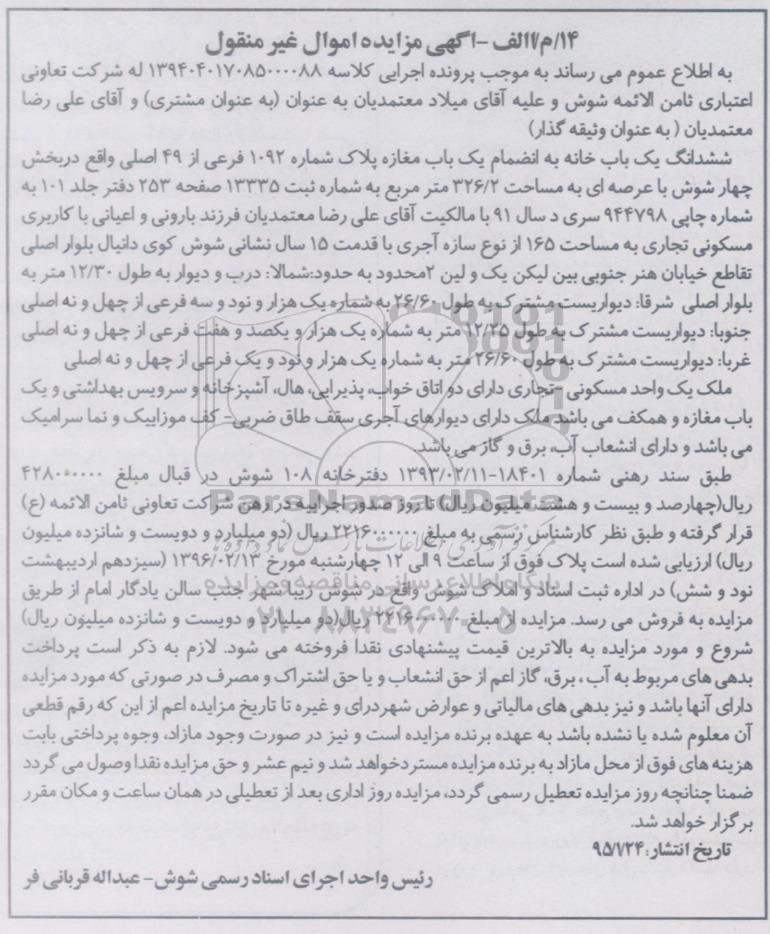 ۱۴/م/الف -اگهی مزایده اموال غیر منقول
به اطلاع عموم می رساند به موجب پرونده اجرایی کلاسه ۱۳۹۴۰۴۰۱۷۰۸۵۰۰۰۰۸۸ له شرکت تعاونی
اعتباری ثامن الائمه شوش و علیه آقای میلاد معتمدیان به عنوان (به عنوان مشتری) و آقای علی رضا
معتمدیان ( به عنوان وثیقه گذار)
ششدانگ یک باب خانه به انضمام یک باب مغازه پلاک شماره ۱۰۹۲ فرعی از ۴۹ اصلی واقع دربخش
چهار شوش با عرصه ای به مساحت ۳۲۶/۲ متر مربع به شماره ثبت ۱۳۳۳۵ صفحه ۲۵۳ دفتر جلد ۱۰۱ به
شماره چاپی ۹۴۴۷۹۸ سری د سال ۹۱ با مالکیت آقای علی رضا معتمدیان فرزند بارونی و اعیانی با کاربری
مسکونی تجاری به مساحت ۱۶۵ از نوع سازه آجری با قدمت ۱۵ سال نشانی شوش کوی دانیال بلوار اصلی
تقاطع خیابان هنر جنوبی بین لیکن یک و لین ۲محدود به حدود:شمالا: درب و دیوار به طول ۱۲/۳۰ متر به
بلوار اصلی شرقا: دیواریست مشترک به طول ۲۶/۶۰ به شماره یک هزار و نود و سه فرعی از چهل و نه اصلی
جنوبا: دیواریست مشترک به طول ۱۲/۲۵ متر به شماره یک هزار و یکصد و هفت فرعی از چهل و نه اصلی
غربا: دیواریست مشترک به طول ۲۶/۶۰ متر به شماره یک هزار و نود و یک فرعی از چهل و نه اصلی
ملک یک واحد مسکونی -تجاری دارای دو اتاق خواب، پذیرایی، هال، آشپزخانه و سرویس بهداشتی و یک
باب مغازه و همکف می باشد ملک دارای دیوارهای آجری سقف طاق ضربی- کف موزاییک و نما سرامیک
می باشد و دارای انشعاب آب، برق و گاز می باشد.
طبق سند رهنی شماره ۱۸۴۰۱-۱۳۹۳/۰۲/۱۱ دفترخانه ۱۰۸ شوش در قبال مبلغ ۴۲۸۰۰۰۰۰۰
ریال(چهارصد و بیست و هشت میلیون ریال) تا روز صدور اجراییه در رهن شرکت تعاونی ثامن الائمه (ع)
قرار گرفته و طبق نظر کارشناس رسمی به مبلغ ۲۲۱۶۰۰۰۰۰۰ ریال (دو میلیارد و دویست و شانزده میلیون
ریال) ارزیابی شده است پلاک فوق از ساعت ۹ الی ۱۲ چهارشنبه مورخ ۱۳۹۶/۰۲/۱۳ (سیزدهم اردیبهشت
نود و شش) در اداره ثبت اسناد و املاک شوش واقع در شوش زیبا شهر جنب سالن یادگار امام از طریق
مزایده به فروش می رسد. مزایده از مبلغ ۲۲۱۶۰۰۰۰۰۰ ریال(دو میلیارد و دویست و شانزده میلیون ریال)
شروع و مورد مزایده به بالاترین قیمت پیشنهادی نقدا فروخته می شود. لازم به ذکر است پرداخت
بدهی های مربوط به آب ، برق، گاز اعم از حق انشعاب و یا حق اشتراک و مصرف در صورتی که مورد مزایده
دارای آنها باشد و نیز بدهی های مالیاتی و عوارض شهردرای و غیره تا تاریخ مزایده اعم از این که رقم قطعی
آن معلوم شده یا نشده باشد به عهده برنده مزایده است و نیز در صورت وجود مازاد، وجوه پرداختی بابت
هزینه های فوق از محل مازاد به برنده مزایده مستردخواهد شد و نیم عشر و حق مزایده نقدا وصول می گردد
ضمنا چنانچه روز مزایده تعطیل رسمی گردد، مزایده روز اداری بعد از تعطیلی در همان ساعت و مکان مقرر
برگزار خواهد شد.
تاریخ انتشار:۹۵/۱/۲۴
رئیس واحد اجرای اسناد رسمی شوش- عبداله قربانی فر
ParsNamadData
پایگاه اطلاع رسانی مناقصه و مزایده